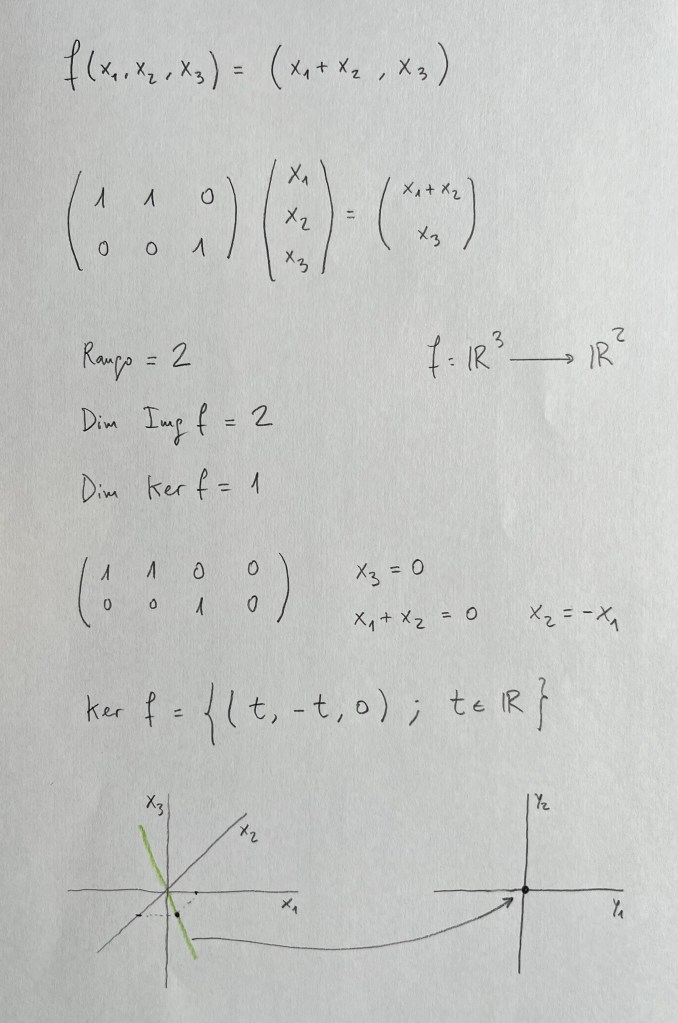 f(x₁, x₂, x₃) = (x₁ + x₂, x₃)
( 1 1 0 ; 0 0 1 ) ( x₁ ; x₂ ; x₃ ) = ( x₁ + x₂ ; x₃ )
Rango = 2
f: ℝ³ ⟶ ℝ²
Dim Img f = 2
Dim Ker f = 1
( 1 1 0 0 ; 0 0 1 0 )
x₃ = 0
x₁ + x₂ = 0 x₂ = -x₁
Ker f = {(t, -t, 0) ; t ∈ ℝ}
x₃
x₂
x₁
Y₂
Y₁